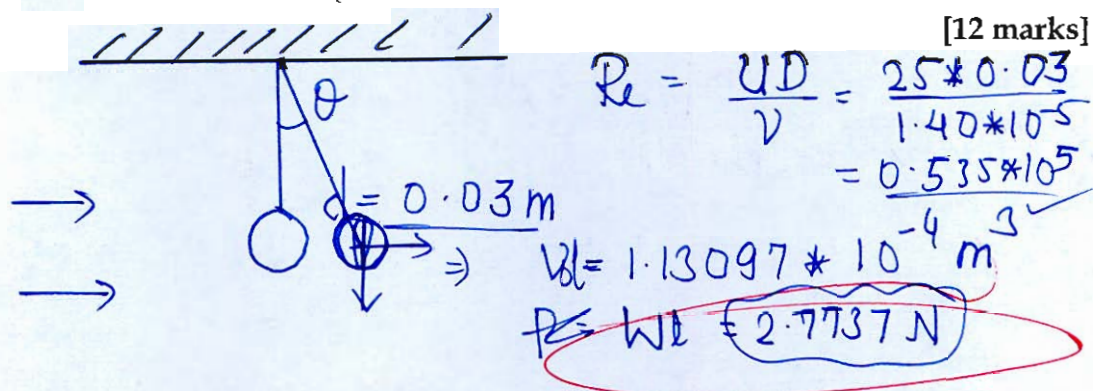 [12 marks]
Re = UD/ν = 25*0.03/1.40*10^-5
= 0.535*10^5
θ
d = 0.03 m
⇒ Vol = 1.13097 * 10^-4 m^3 ✓
Wt = 2.7737 N